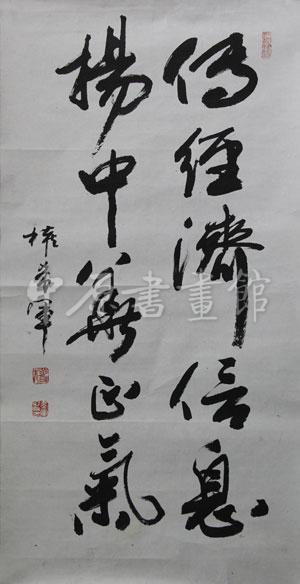 傳經濟信息
揚中華正氣
權希軍
書畫館